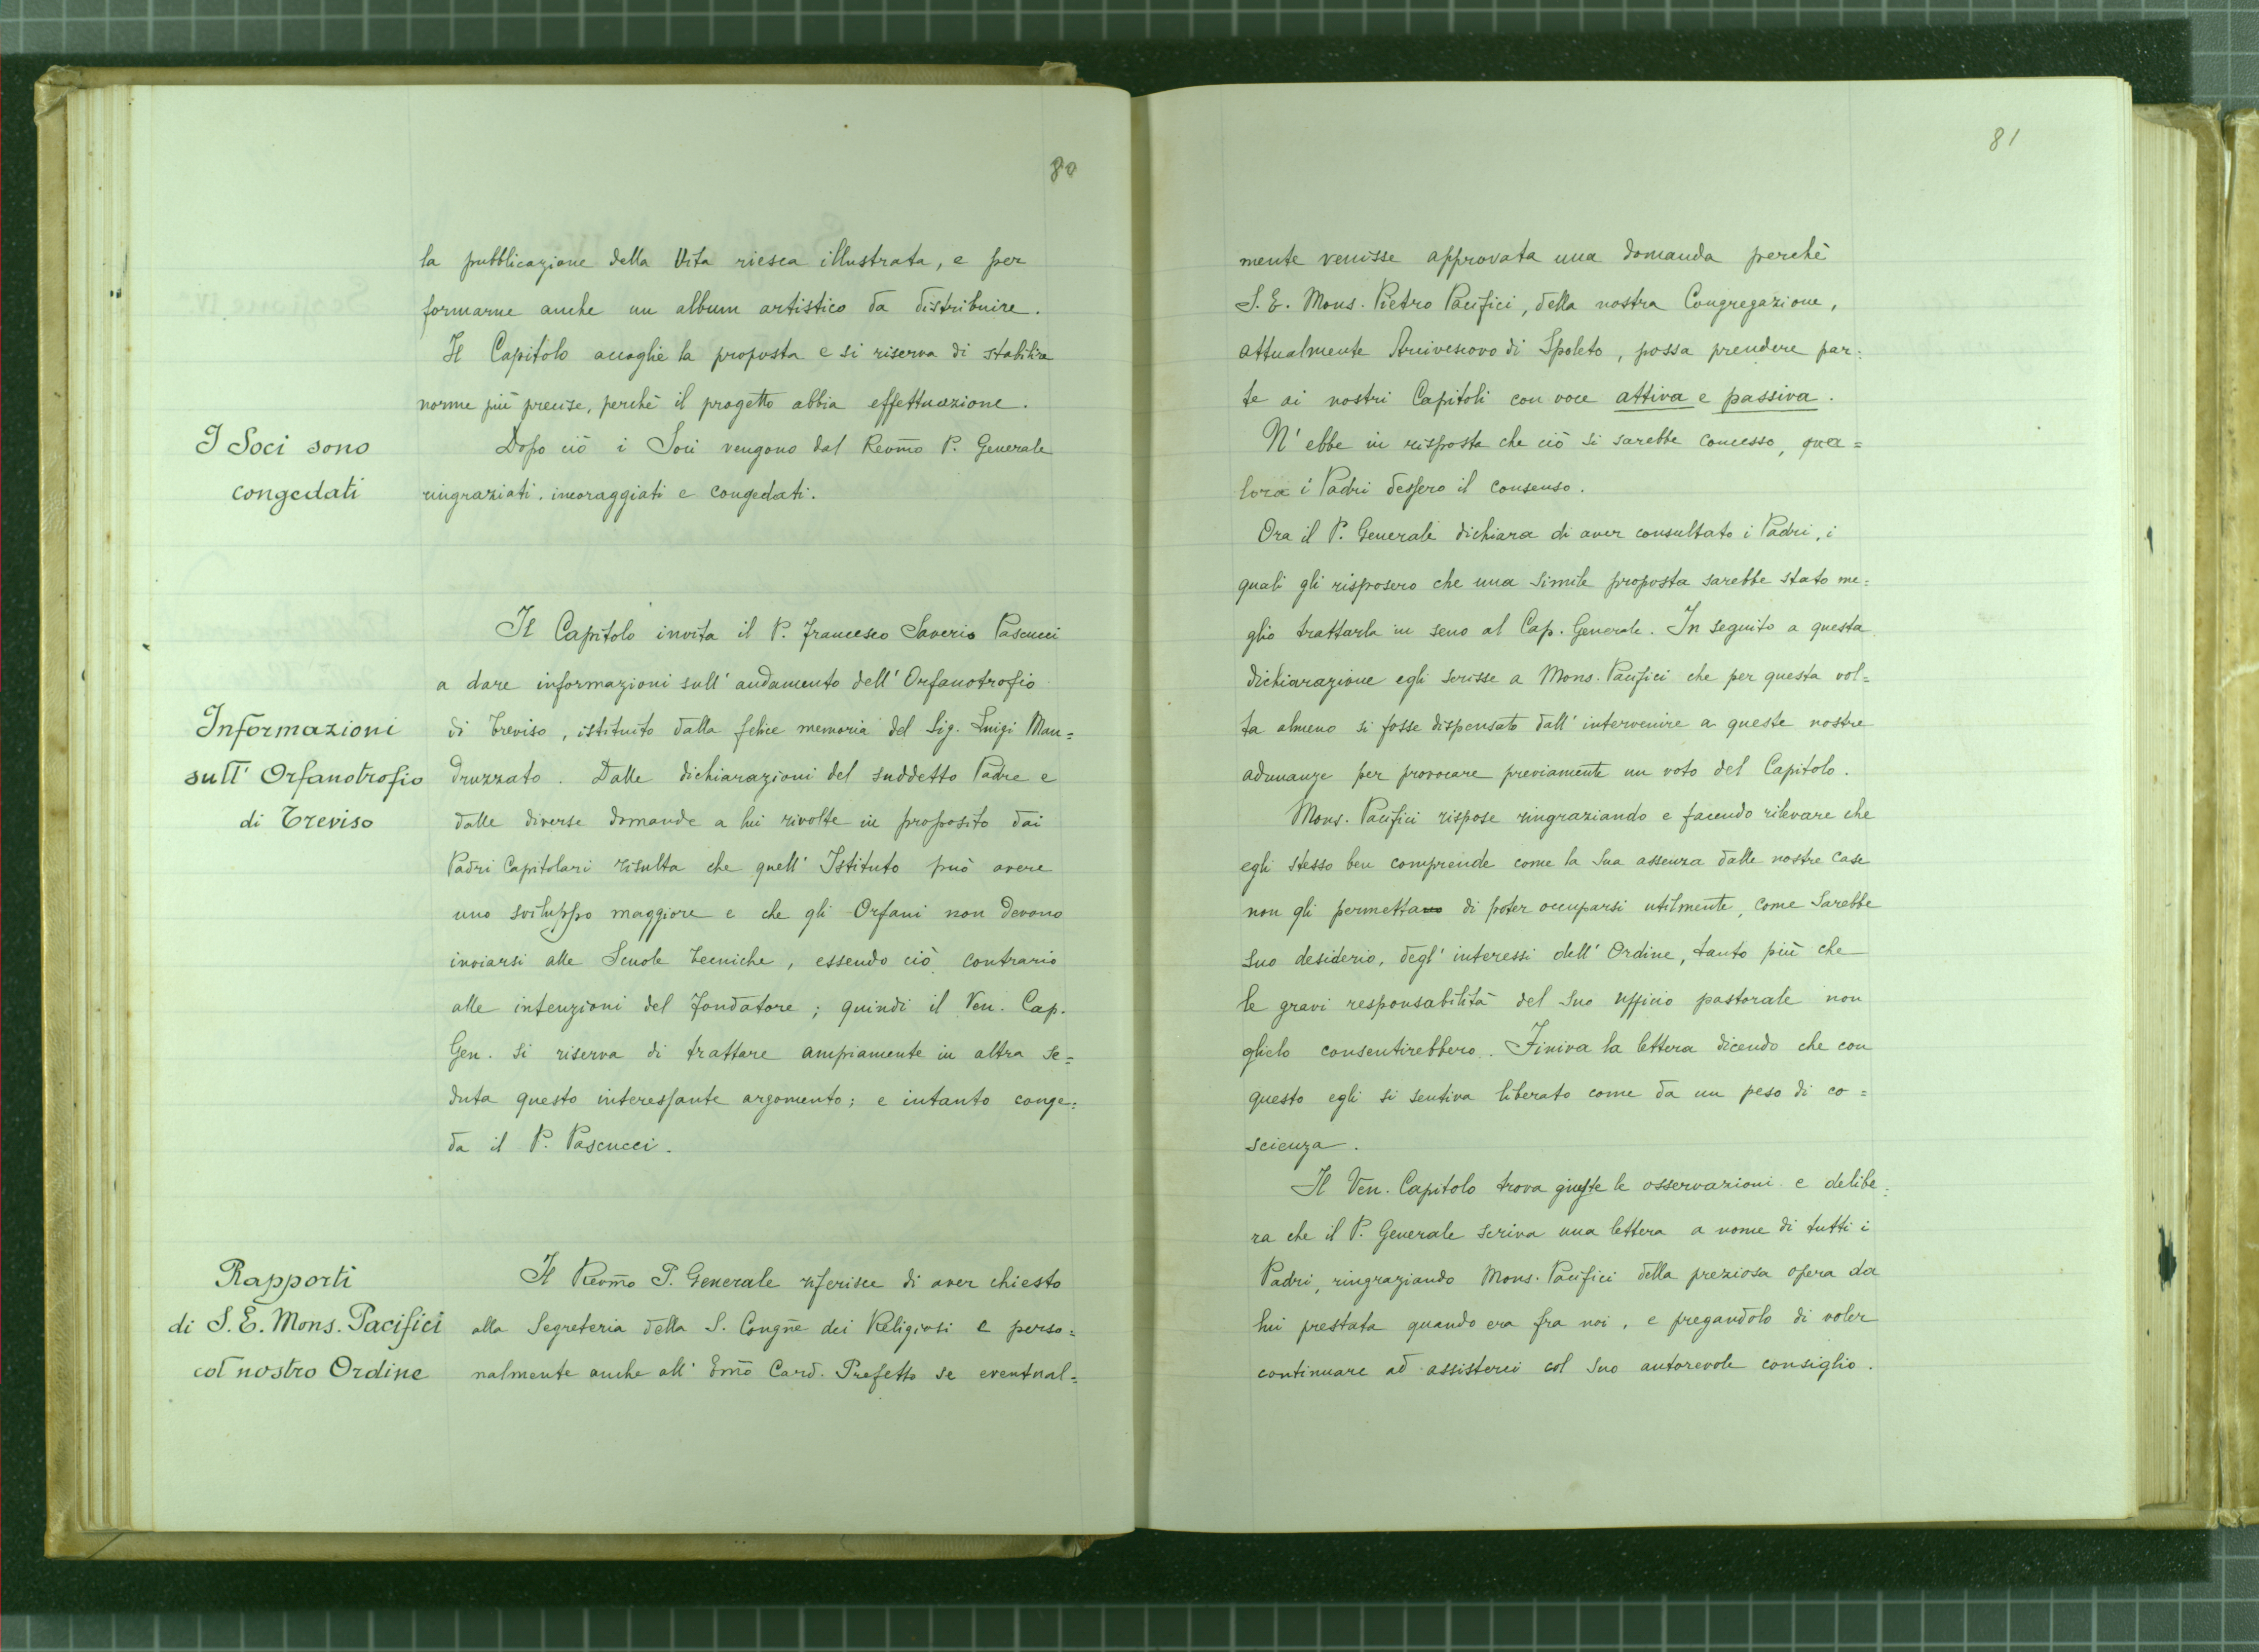 80
la pubblicazione della Vita riesca illustrata, e per
formarne anche un album artistico da distribuire.
Il Capitolo accoglie la proposta e si riserva di stabilire
norme più precise, perchè il progetto abbia effettuazione.
I Soci sono
congedati
Dopo ciò i Soci vengono dal Revm̃o P. Generale
ringraziati, incoraggiati e congedati.
Informazioni
sull' Orfanotrofio
di Treviso
Il Capitolo invita il P. Francesco Saverio Pascucci
a dare informazioni sull' andamento dell' Orfanotrofio
di Treviso, istituito dalla felice memoria del Sig. Luigi Man=
druzzato. Dalle dichiarazioni del suddetto Padre e
dalle diverse domande a lui rivolte in proposito dai
Padri Capitolari risulta che quell' Istituto può avere
uno sviluppo maggiore e che gli Orfani non devono
inviarsi alle Scuole Tecniche, essendo ciò contrario
alle intenzioni del Fondatore; quindi il Ven. Cap.
Gen. si riserva di trattare ampiamente in altra se=
duta questo interessante argomento; e intanto conge=
da il P. Pascucci.
Rapporti
di S. E. Mons. Pacifici
col nostro Ordine
Il Revm̃o P. Generale riferisce di aver chiesto
alla Segreteria della S. Congñe dei Religiosi e perso=
nalmente anche all' Em̃o Card. Prefetto se eventual=
81
mente venisse approvata una domanda perchè
S. E. Mons. Pietro Pacifici, della nostra Congregazione,
attualmente Arcivescovo di Spoleto, possa prendere par=
te ai nostri Capitoli con voce attiva e passiva.
N' ebbe in risposta che ciò si sarebbe concesso, qua=
lora i Padri dessero il consenso.
Ora il P. Generale dichiara di aver consultato i Padri, i
quali gli risposero che una simile proposta sarebbe stato me=
glio trattarla in seno al Cap. Generale. In seguito a questa
dichiarazione egli scrisse a Mons. Pacifici che per questa vol=
ta almeno si fosse dispensato dall' intervenire a queste nostre
adunanze per provocare previamente un voto del Capitolo.
Mons. Pacifici rispose ringraziando e facendo rilevare che
egli stesso ben comprende come la sua assenza dalle nostre case
non gli permetta di poter occuparsi utilmente, come sarebbe
suo desiderio, degl' interessi dell' Ordine, tanto più che
le gravi responsabilità del suo ufficio pastorale non
glielo consentirebbero. Finiva la lettera dicendo che con
questo egli si sentiva liberato come da un peso di co=
scienza.
Il Ven. Capitolo trova giuste le osservazioni e delibe=
ra che il P. Generale scriva una lettera a nome di tutti i
Padri, ringraziando Mons. Pacifici della preziosa opera da
lui prestata quando era fra noi, e pregandolo di voler
continuare ad assisterci col suo autorevole consiglio.